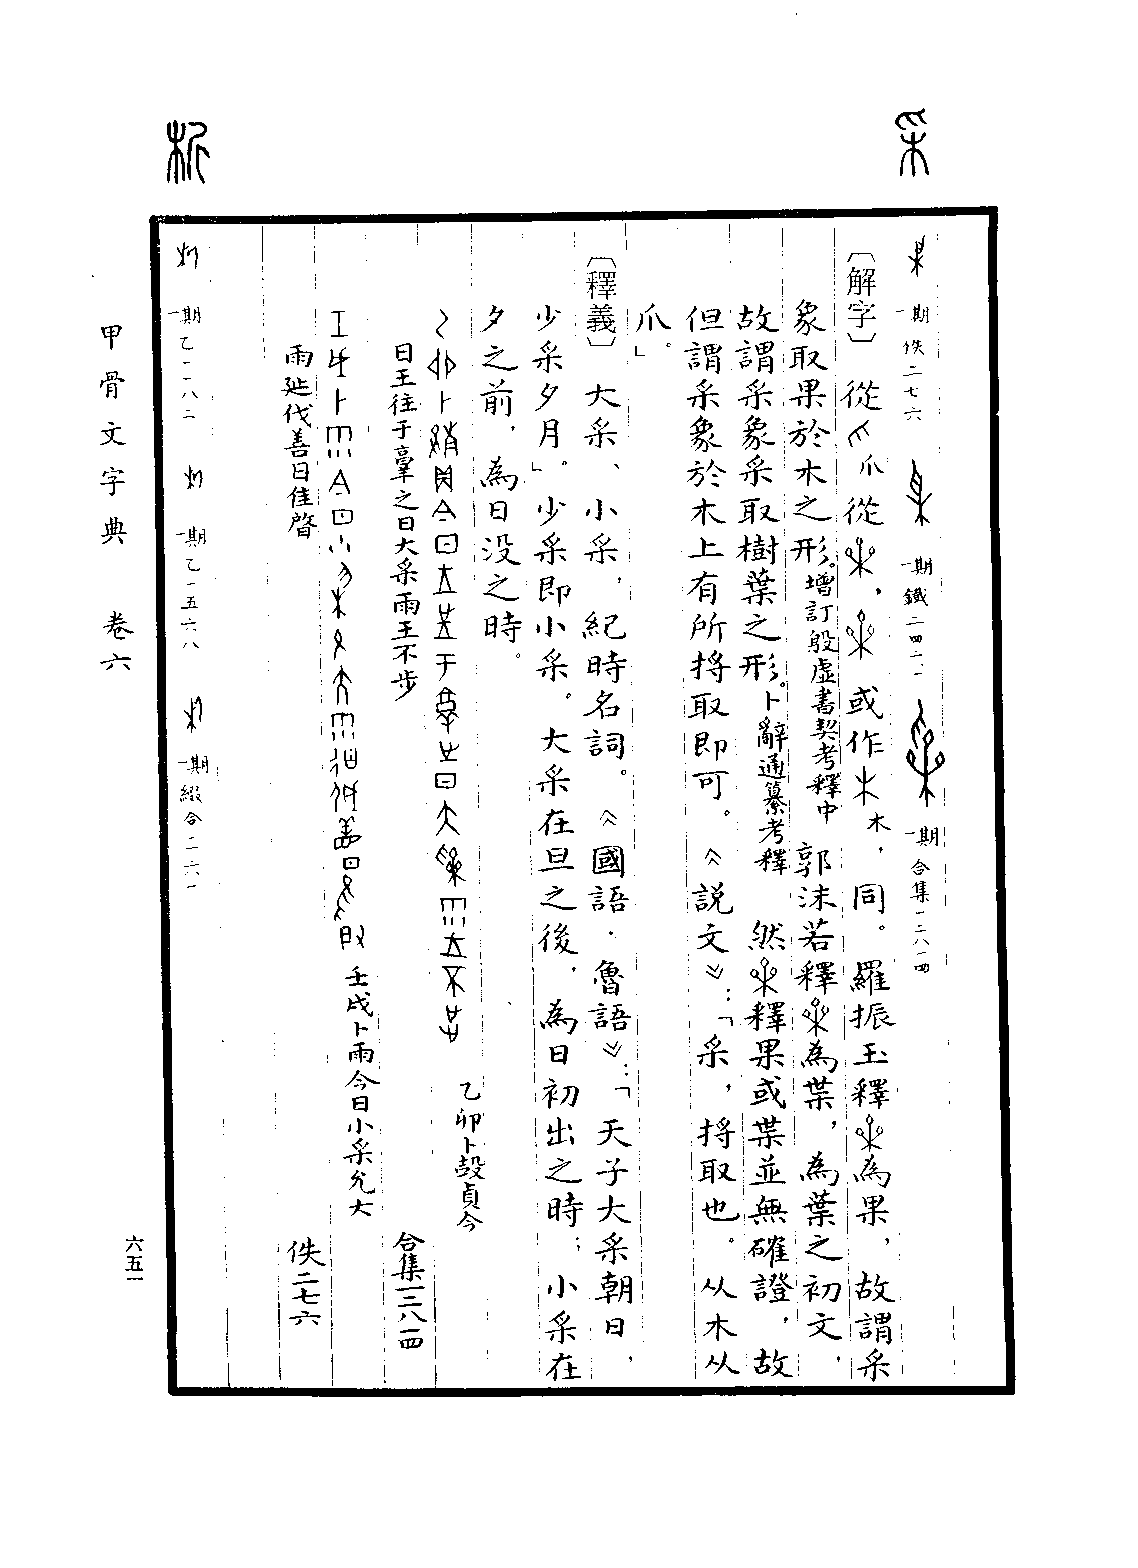 采
一期 佚二七六 一期 鐵二四二·一 一期 合集一二八一四
〔解字〕從爪從，或作木，同。羅振玉釋為果，故謂采
象取果於木之形。增訂殷虛書契考釋中 郭沫若釋為葉，為葉之初文，
故謂采象采取樹葉之形。卜辭通纂考釋 然釋果或葉並無確證，故
但謂采象於木上有所捋取即可。《說文》：「采，捋取也。从木从
爪。」
〔釋義〕大采、小采，紀時名詞。《國語·魯語》：「天子大采朝日，
少采夕月。」少采即小采。大采在旦之後，為日初出之時；小采在
夕之前，為日沒之時。
乙卯卜㱿貞今
日王往于𦎫之日大采雨王不步 合集一二八一四
壬戌卜雨今日小采允大
雨延伐善日隹啓 佚二七六
析
一期 乙一一八二 一期 乙一五六八 一期 綴合二六一
甲骨文字典 卷六
六五一